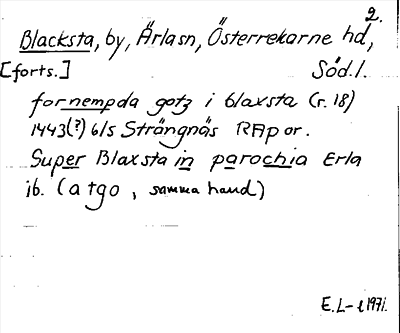 2.
Blacksta, by, Ärlasn, Österrekarne hd,
[forts.] Söd.l.
for nempda gotz i blaxsta (r. 18)
1443(?) 6/5 Strängnäs RAp or.
Super Blaxsta in parochia Erla
ib. (a tgo, samma hand)
E.L-l 1971.